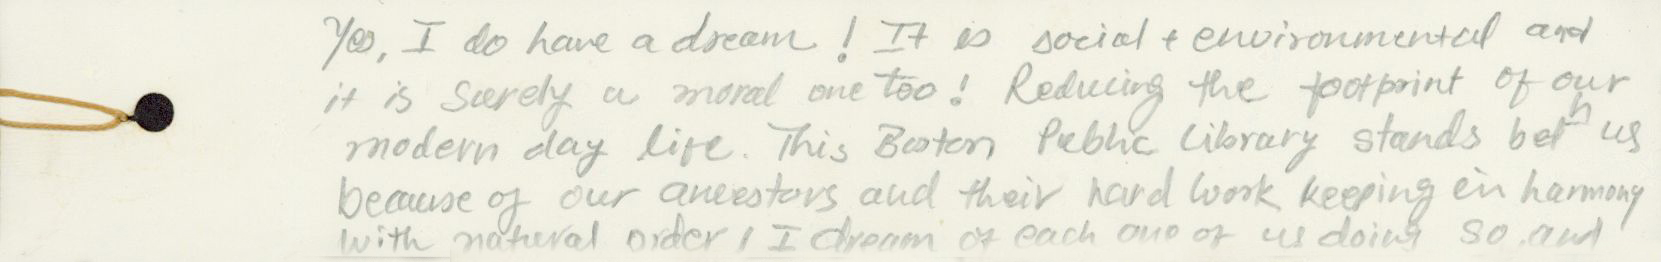 Yes, I do have a dream! It is social + environmental and
it is surely a moral one too! Reducing the footprint of our
modern day life. This Boston Public Library stands betn us
because of our ancestors and their hard work keeping in harmony
with natural order! I dream of each one of us doing so and